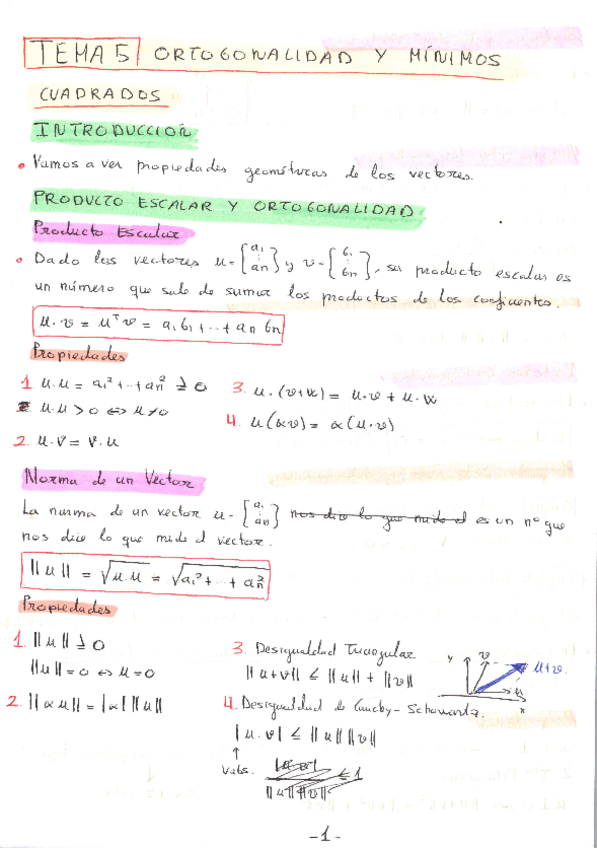 TEMA 5 ORTOGONALIDAD Y MÍNIMOS
CUADRADOS
INTRODUCCIÓN
• Vamos a ver propiedades geométricas de los vectores.
PRODUCTO ESCALAR Y ORTOGONALIDAD
Producto Escalar
• Dado los vectores u = [a₁ ⋮ an] y v = [b₁ ⋮ bn], su producto escalar es
un número que sale de sumar los productos de los coeficientes.
u·v = uᵀv = a₁b₁ + ... + an bn
Propiedades
1 u·u = a₁² + ... + an² ≥ 0
u·u > 0 ⇔ u ≠ 0
2. u·v = v·u
3. u·(v+w) = u·v + u·w
4. u(αv) = α(u·v)
Norma de un Vector
La norma de un vector u = [a₁ ⋮ an] nos dice lo que mide el es un nº que
nos dice lo que mide el vector.
||u|| = √u·u = √a₁² + ... + an²
Propiedades
1. ||u|| ≥ 0
||u|| = 0 ⇔ u = 0
2. ||αu|| = |α| ||u||
3. Desigualdad Triangular
||u+v|| ≤ ||u|| + ||v||
y v u+v u x
4. Desigualdad de Cauchy-Schawartz.
|u·v| ≤ ||u|| ||v||
↑
Vabs.
||u|| ||v|| ≤ 1
-1-